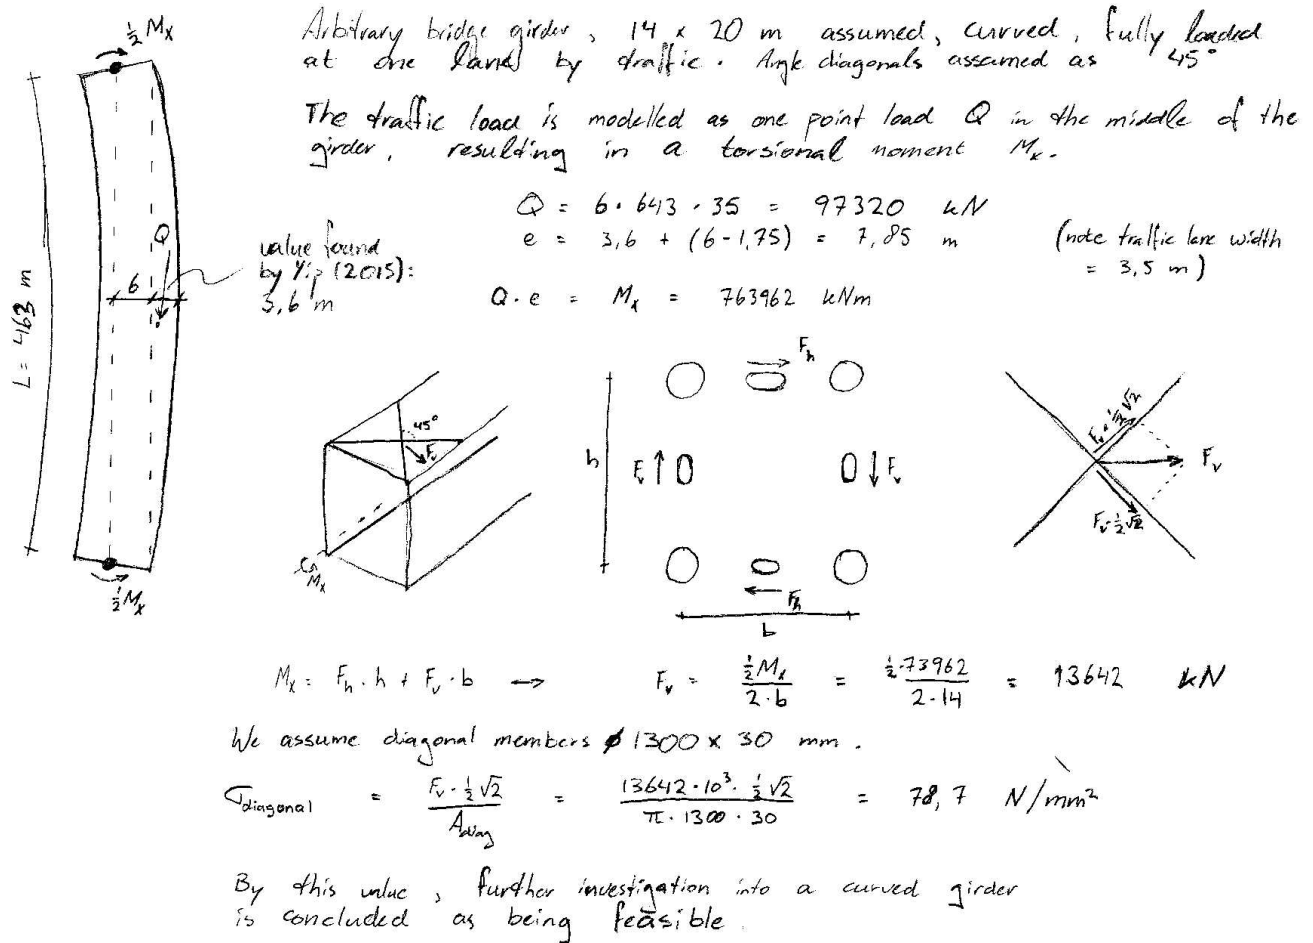 ½ Mx
Arbitrary bridge girder, 14 x 20 m assumed, curved, fully loaded
at one land by traffic. Angle diagonals assumed as 45°
The traffic load is modelled as one point load Q in the middle of the
girder, resulting in a torsional moment Mx.
Q = 6 · 643 · 35 = 97320 kN
e = 3,6 + (6-1,75) = 7,85 m
(note traffic lane width
= 3,5 m)
Q · e = Mx = 763962 kNm
value found
by Yip (2015):
3,6 m
Q
6
L = 463 m
½ Mx
45°
Fv
Mx
Fh
h
Fv
Fv
Fh
b
Fv · ½√2
Fv
Fv · ½√2
Mx = Fh · h + Fv · b → Fv = ½Mx / 2·b = ½·73962 / 2·14 = 13642 kN
We assume diagonal members ø 1300 x 30 mm.
σdiagonal = Fv · ½√2 / Adiag = 13642 · 10³ · ½√2 / π · 1300 · 30 = 78,7 N/mm²
By this value, further investigation into a curved girder
is concluded as being feasible.